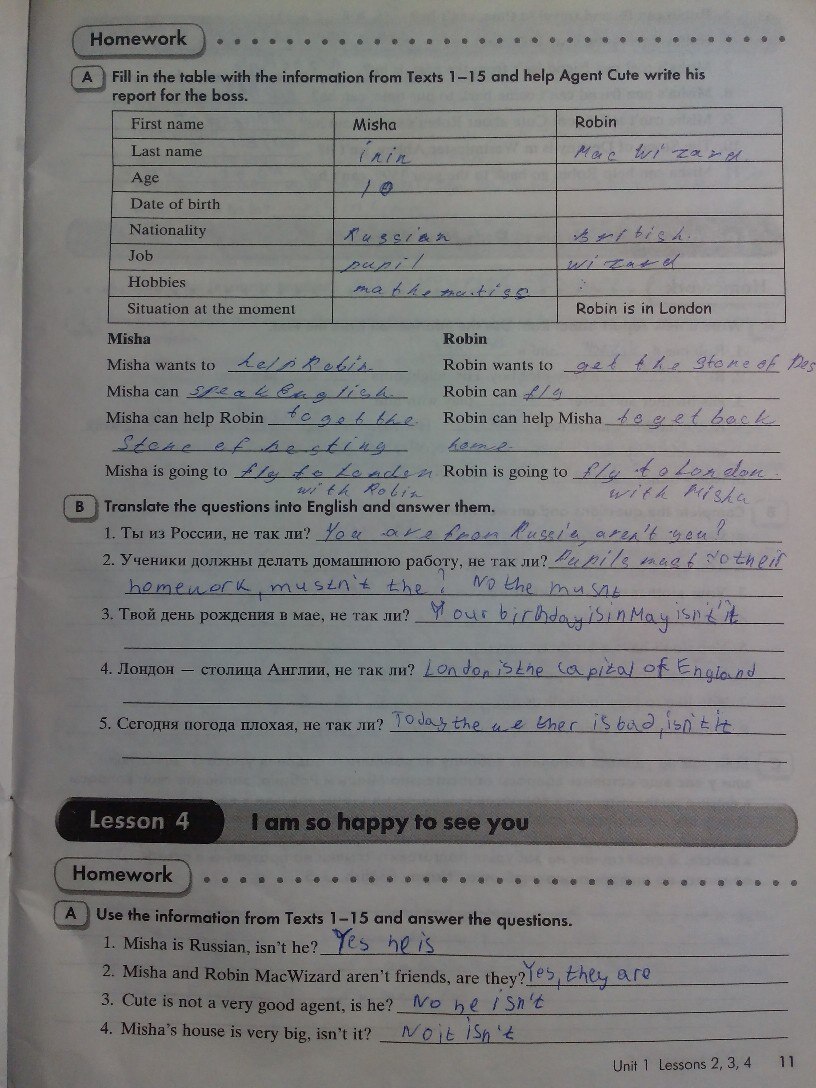 Homework
A Fill in the table with the information from Texts 1–15 and help Agent Cute write his
report for the boss.
First name Misha Robin
Last name inin Mac Wizard
Age 10
Date of birth
Nationality Russian British.
Job pupil wizard
Hobbies mathematiss
Situation at the moment Robin is in London
Misha Robin
Misha wants to help Robin Robin wants to get the Stone of Des
Misha can speak English. Robin can fly
Misha can help Robin to get the Robin can help Misha to get back
Stone of hesting home
Misha is going to fly to London Robin is going to fly to London
with Robin with Misha
B Translate the questions into English and answer them.
1. Ты из России, не так ли? You are from Russia, aren't you?
2. Ученики должны делать домашнюю работу, не так ли? Pupils must do their
homework, mustn't the? No the musnt
3. Твой день рождения в мае, не так ли? Your birthday is in May isn't it
4. Лондон — столица Англии, не так ли? London is the capital of England
5. Сегодня погода плохая, не так ли? Today the wether is bad, isn't it
Lesson 4 I am so happy to see you
Homework
A Use the information from Texts 1–15 and answer the questions.
1. Misha is Russian, isn't he? Yes he is
2. Misha and Robin MacWizard aren't friends, are they? Yes, they are
3. Cute is not a very good agent, is he? No he isn't
4. Misha's house is very big, isn't it? No it isn't
Unit 1 Lessons 2, 3, 4 11